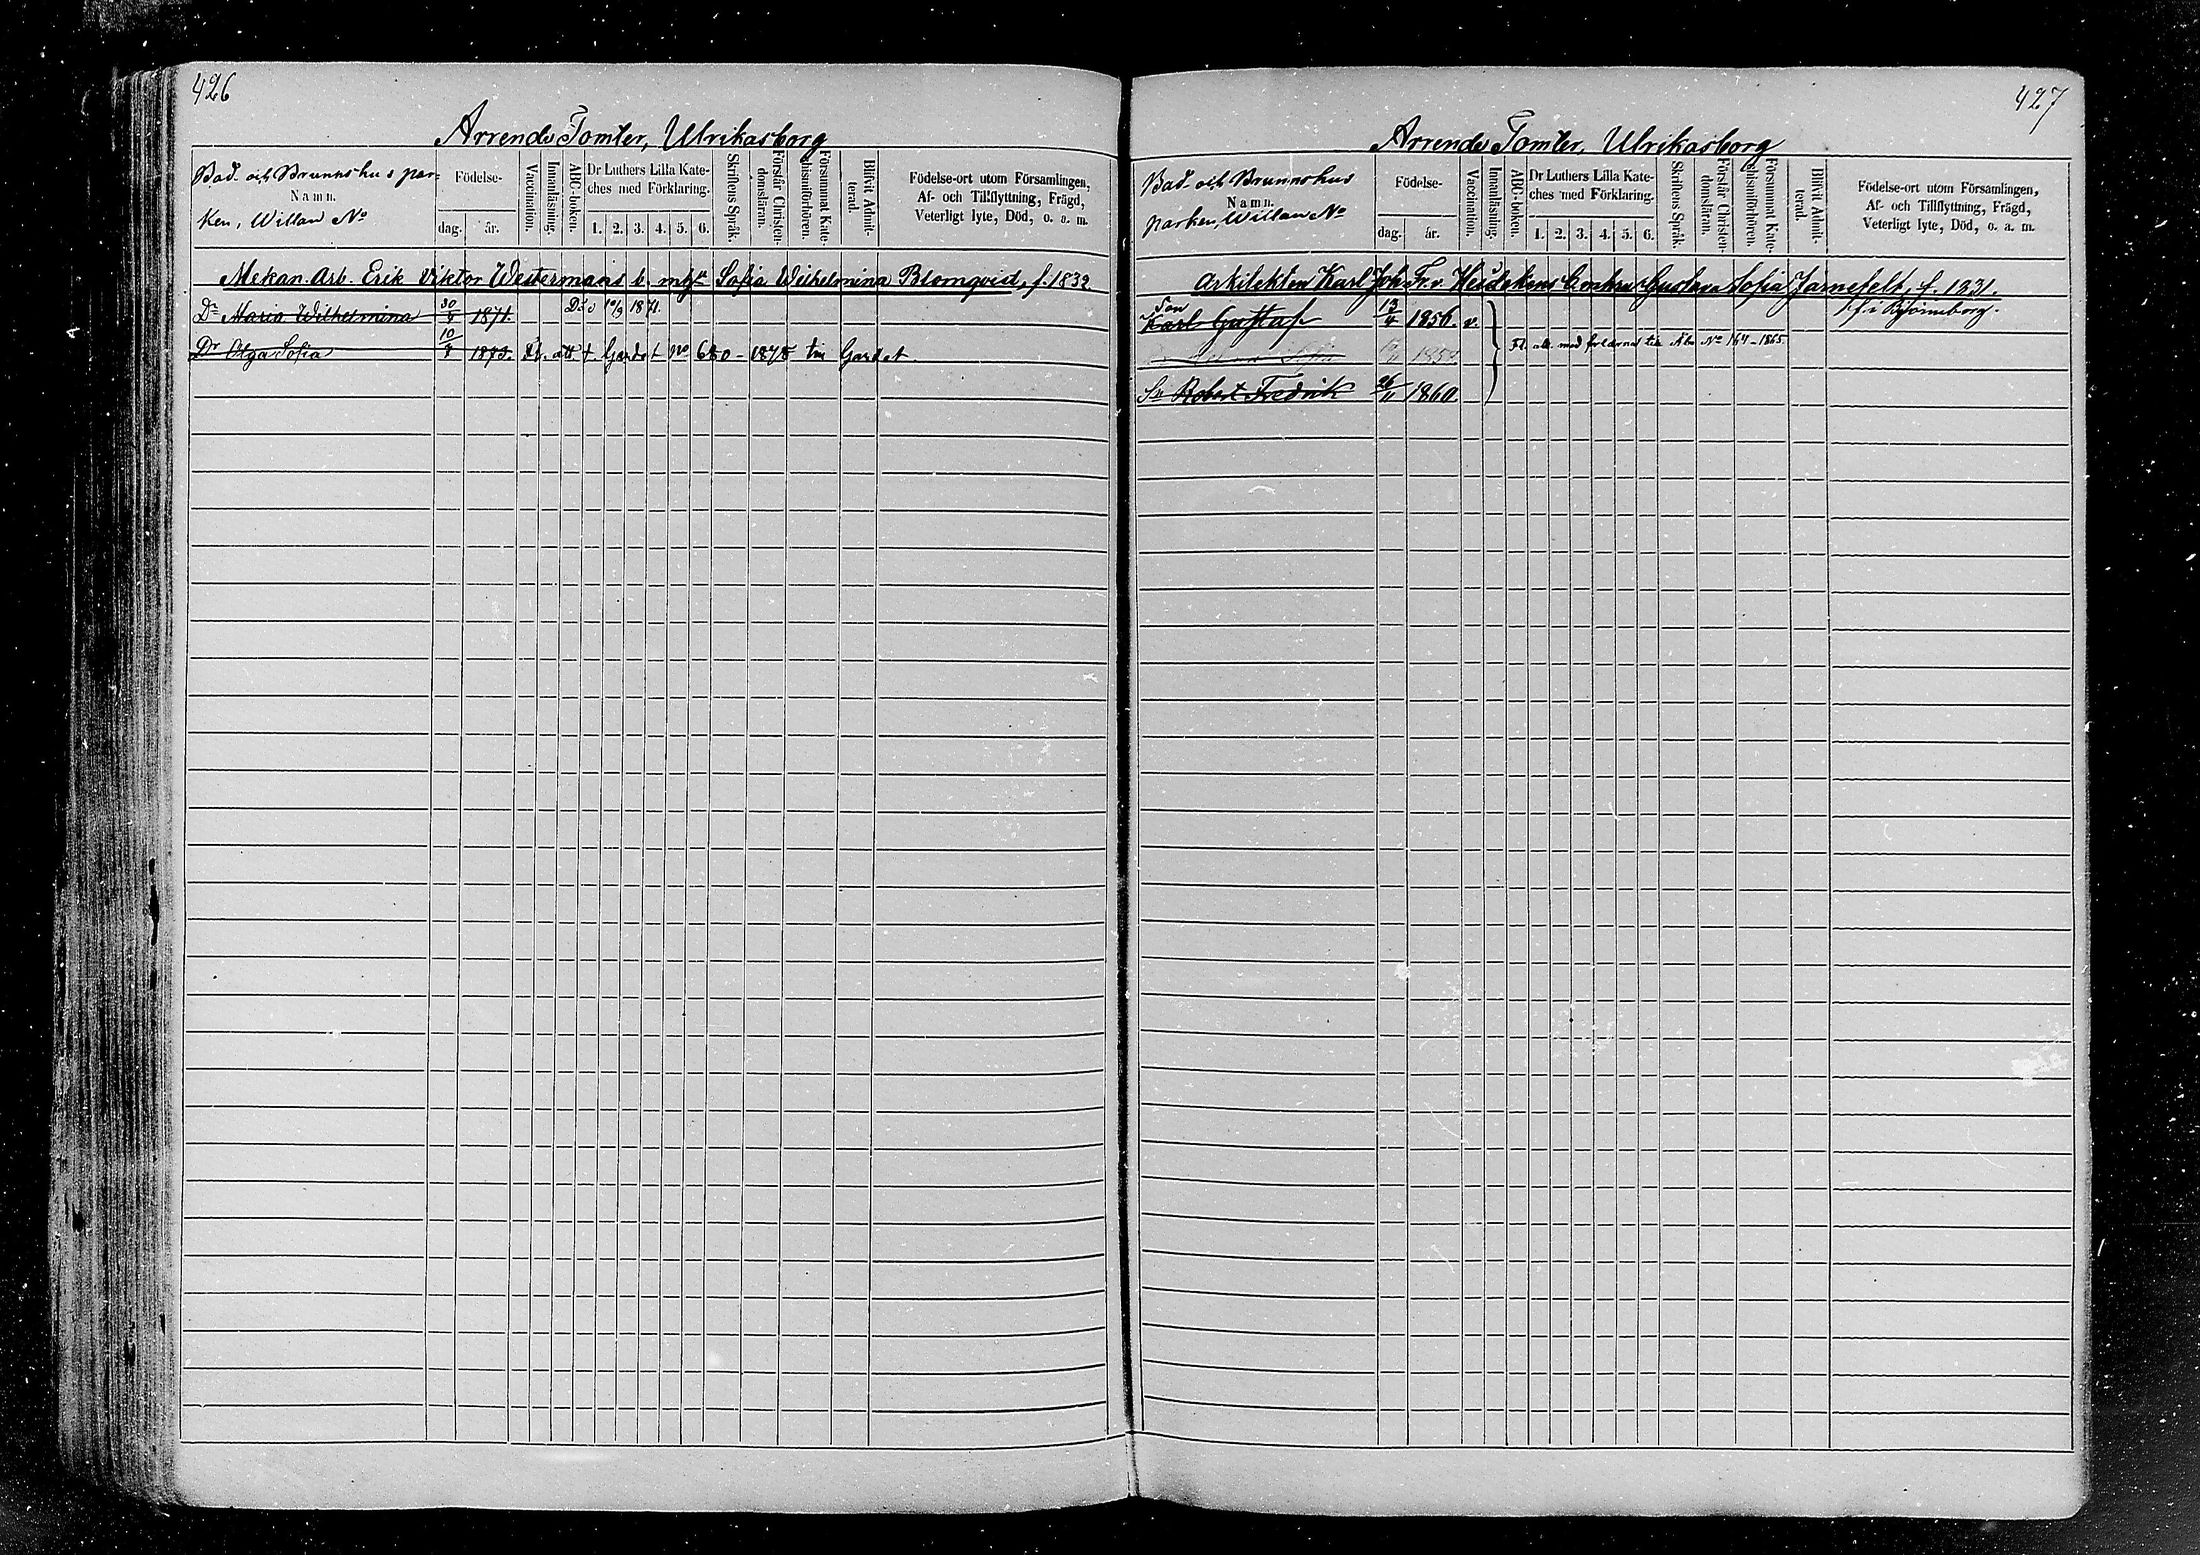 426
Arrende Tomter, Ulrikasborg
Bad- och Brunnshus par-
Namn.
ken, Willan No
Födelse-
dag. år.
Vaccination.
Innanläsning.
ABC-boken.
Dr Luthers Lilla Kate-
ches med Förklaring.
1. 2. 3. 4. 5. 6.
Skriftens Språk.
Förstår Christen-
domsläran.
Försummat Kate-
chismiförhören.
Blifvit Admit-
terad.
Födelse-ort utom Församlingen,
Af- och Tillflyttning, Frägd,
Veterligt lyte, Död, o. a. m.
Mekan. Arb. Erik Viktor Westermans b. m. Sofia Wilhelmina Blomqvist, f. 1832
Dr Maria Wilhelmina 30/8 1871. Död 10/9 1871.
Dr Olga Sofia 10/8 1873. Fl. att. t. Gardet No 680 - 1878 till Gardet.
427
Arrende Tomter, Ulrikasborg
Bad- och Brunnshus
Namn.
parken, Willan No
Födelse-
dag. år.
Vaccination.
Innanläsning.
ABC-boken.
Dr Luthers Lilla Kate-
ches med Förklaring.
1. 2. 3. 4. 5. 6.
Skriftens Språk.
Förstår Christen-
domsläran.
Försummat Kate-
chismiförhören.
Blifvit Admit-
terad.
Födelse-ort utom Församlingen,
Af- och Tillflyttning, Frägd,
Veterligt lyte, Död, o. a. m.
Arkitekten Karl Joh. Fr. v. Heidekens Enkfru Gustava Sofia Jarnefelt, f. 1831.
Son
Karl Gustaf 13/4 1856. v. f. i Björneborg.
Fl. att. med föräldrarna till Åbo No 164 - 1865.
Sn Robert Fredrik 26/11 1860